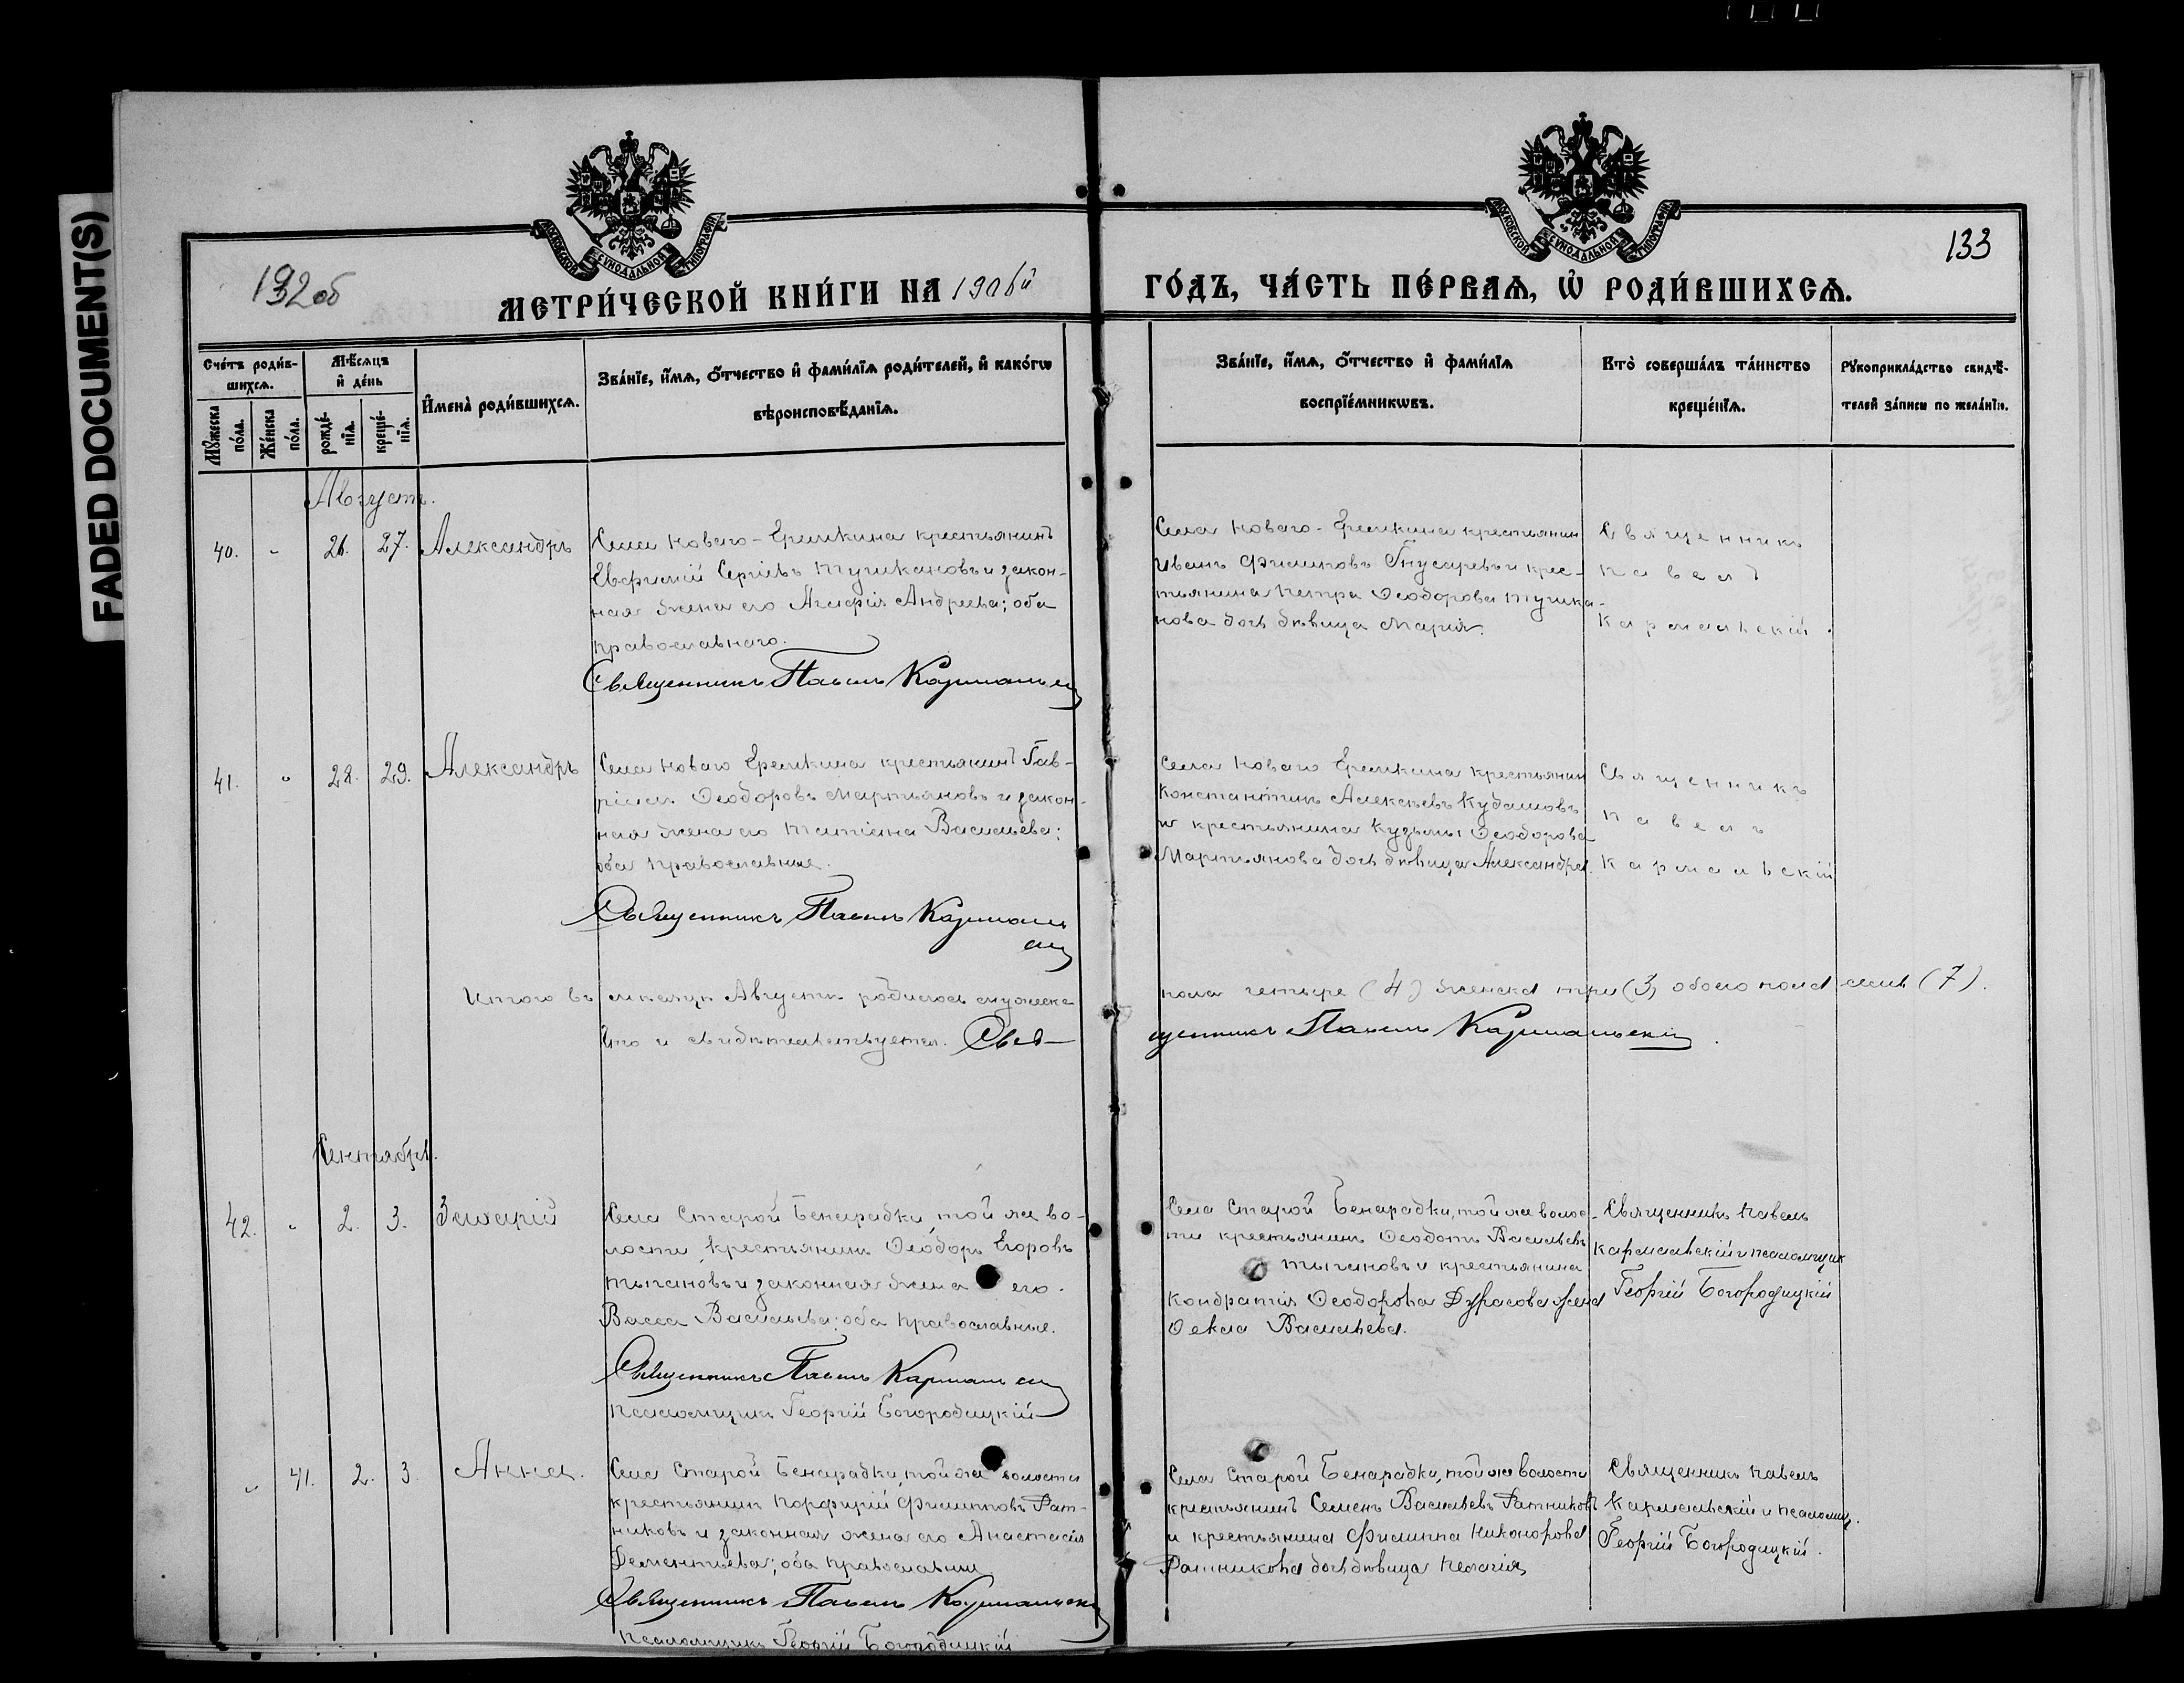 FADED DOCUMENT(S)
132об
133
МОСКОВСКОЙ СѴНОДАЛЬНОЙ ТИПОГРАФІИ
МОСКОВСКОЙ СѴНОДАЛЬНОЙ ТИПОГРАФІИ
МЕТРИ́ЧЕСКОЙ КНИ́ГИ НА 1906й ГО́ДЪ, ЧА́СТЬ ПЕ́РВАѦ, Ѡ҆ РОДИ́ВШИХСѦ.
Сче́тъ роди́в-
шихсѧ.
Мꙋ́жеска по́ла.
Же́нска по́ла.
Мѣ́сѧцъ
и҆ де́нь
рожде́-
нїѧ.
креще́-
нїѧ.
И҆мена̀ роди́вшихсѧ.
Зва́нїе, и҆́мѧ, ѻ҆́тчество и҆ фами́лїѧ роди́телей, и҆ како́гѡ
вѣроисповѣ́данїѧ.
Зва́нїе, и҆́мѧ, ѻ҆́тчество и҆ фами́лїѧ
воспрїе́мникѡвъ.
Кто̀ соверша́лъ та́инство
креще́нїѧ.
Рꙋкоприкла́дство свидѣ́-
телей за́писи по жела́нїю.
Августъ.
40. " 26. 27. Александръ
Села Новаго-Еремкина крестьянинъ
Евфимій Сергѣевъ Тушкановъ и закон-
ная жена его Агафія Андреева; оба
православнаго.
Священникъ Павелъ Кармальскій
Села Новаго-Еремкина крестьянин
Иванъ Филиповъ Гнусаревъ и крес-
тьянина Петра Ѳеодорова Тушка-
нова дочь дѣвица Марія.
Священникъ
Павелъ
Кармальскій.
41. " 28. 29. Александръ
Села Новаго Еремкина крестьянинъ Гав-
ріилъ Ѳеодоровъ Мартьяновъ и закон-
ная жена его Татіана Васильева;
оба православные.
Священникъ Павелъ Кармаль
скій
Села Новаго Еремкина крестьянин
Константинъ Алексѣевъ Кудашовъ
и крестьянина Кузьмы Ѳеодорова
Мартьянова дочь дѣвица Александра.
Священникъ
Павелъ
Кармальскій
Итого въ мѣсяцѣ Августѣ родилось мужеска пола четыре (4) женска три (3) обоего пола семь (7).
Что и свидѣтельствуется. Священникъ Павелъ Кармальскій.
Сентябрь.
42. " 2. 3. Захарій
Села Старой Бинарадки, той же во-
лости крестьянинъ Ѳеодоръ Егоровъ
Тыгановъ и законная жена его
Васса Васильева; оба православные.
Священникъ Павелъ Кармальскій
Псаломщикъ Георгій Богородицкій
Села Старой Бинарадки, той же волос-
ти крестьянинъ Ѳеодотъ Васильевъ
Тыгановъ и крестьянина
Кондратія Ѳеодорова Дурасова жена
Ѳекла Васильева.
Священникъ Павелъ
Кармальскій и псаломщик
Георгій Богородицкій
" 41. 2. 3. Анна.
Села Старой Бинарадки, той же волости
крестьянинъ Порфирій Филиповъ Рат-
никовъ и законная жена его Анастасія
Дементьева; оба православные
Священникъ Павелъ Кармальскій
Псаломщикъ Георгій Богородицкій
Села Старой Бинарадки, той же волости
крестьянинъ Семенъ Васильевъ Ратниковъ
и крестьянина Филиппа Никонорова
Ратникова дочь дѣвица Пелагія
Священникъ Павелъ
Кармальскій и псаломщ.
Георгій Богородицкій.